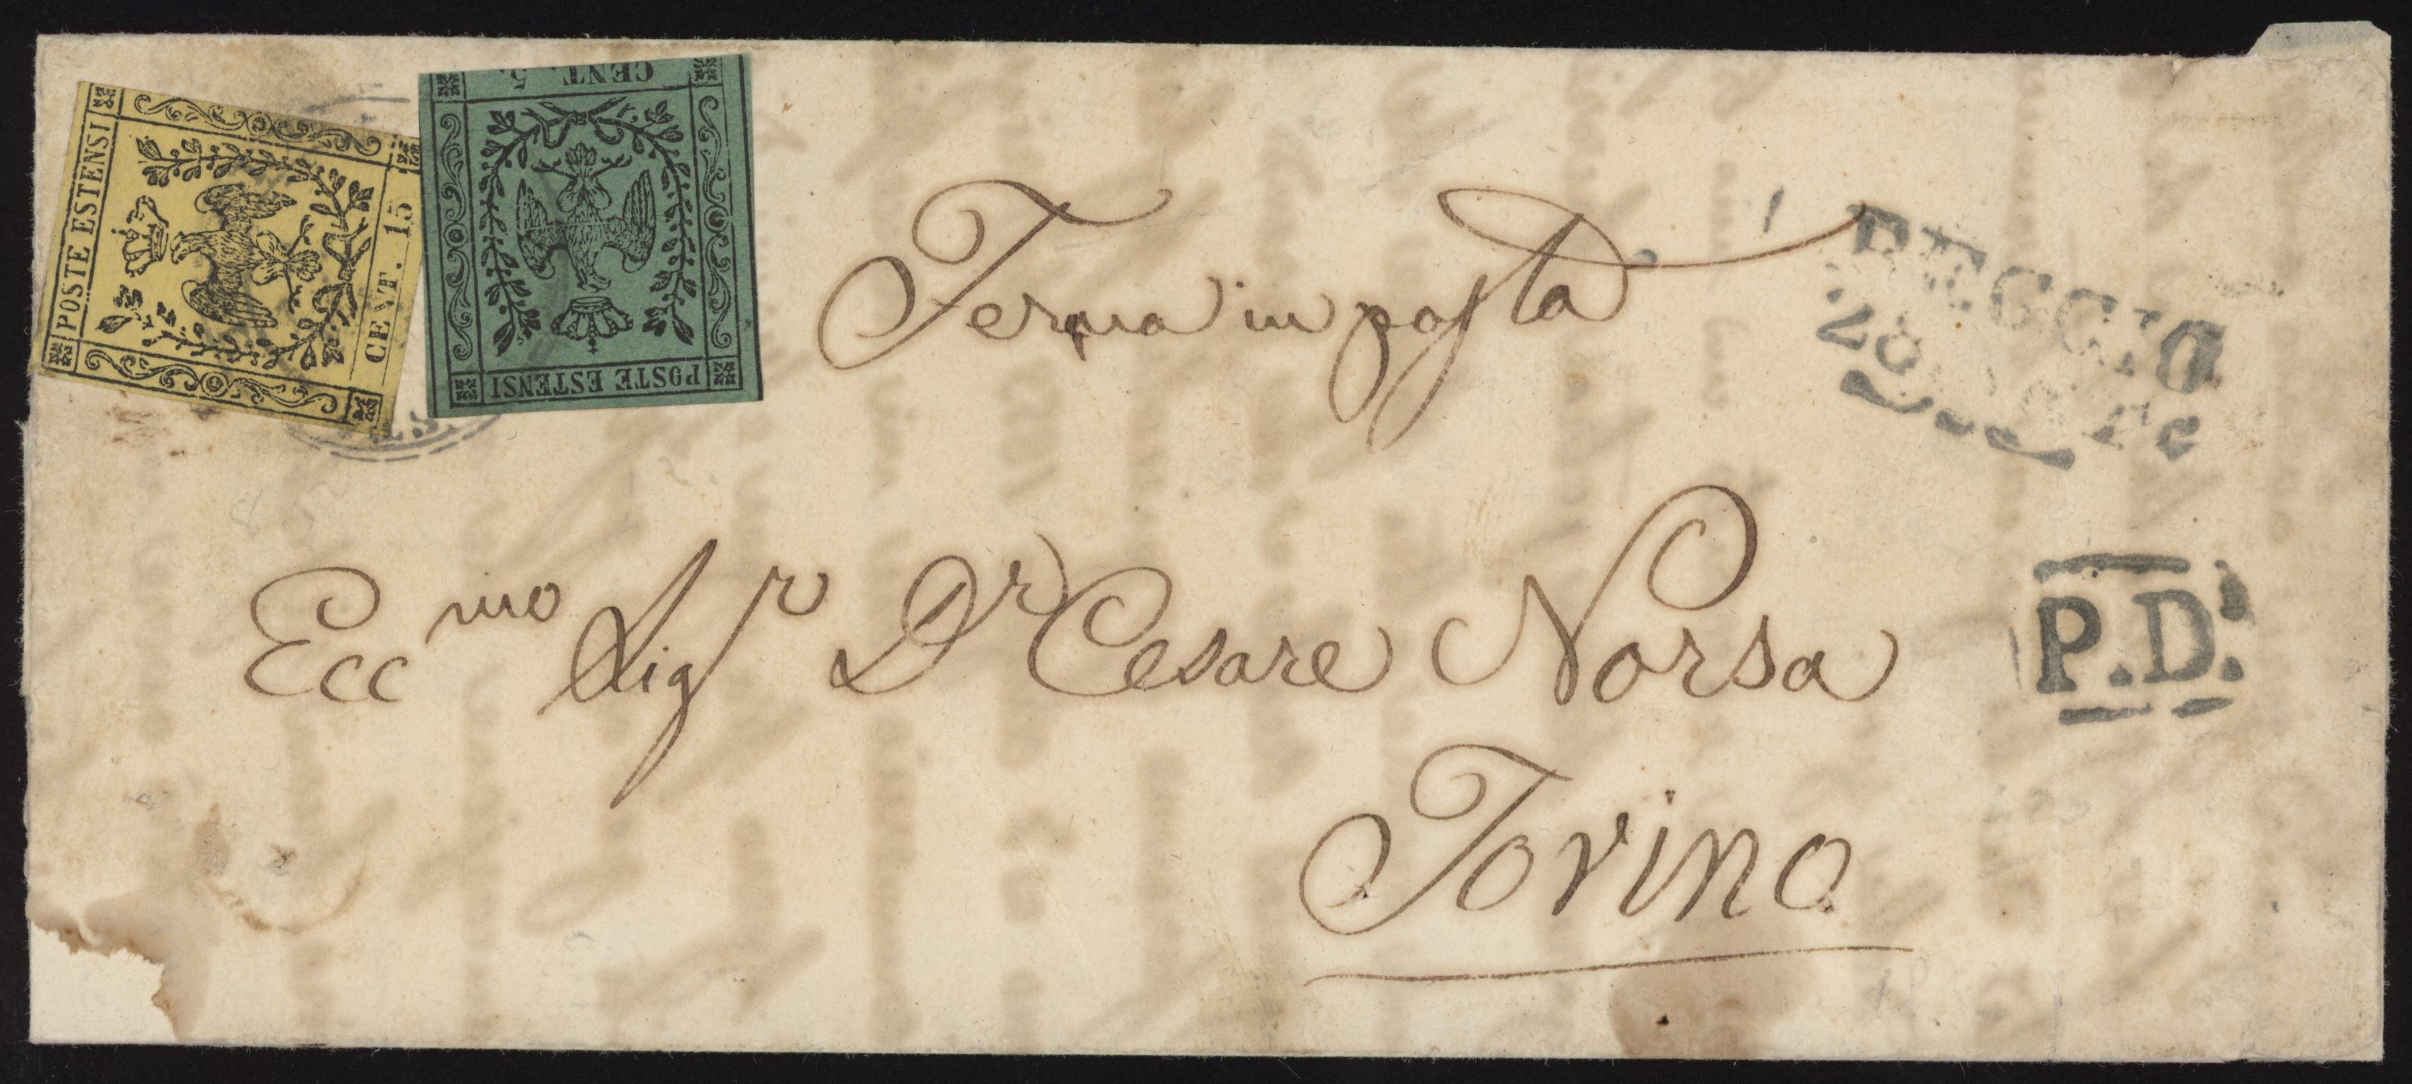 POSTE ESTENSI
CENT. 15
CENT. 5.
POSTE ESTENSI
Ferma in posta
REGGIO
28
Ecc.mo Sigr Dr Cesare Norsa
P.D.
Torino